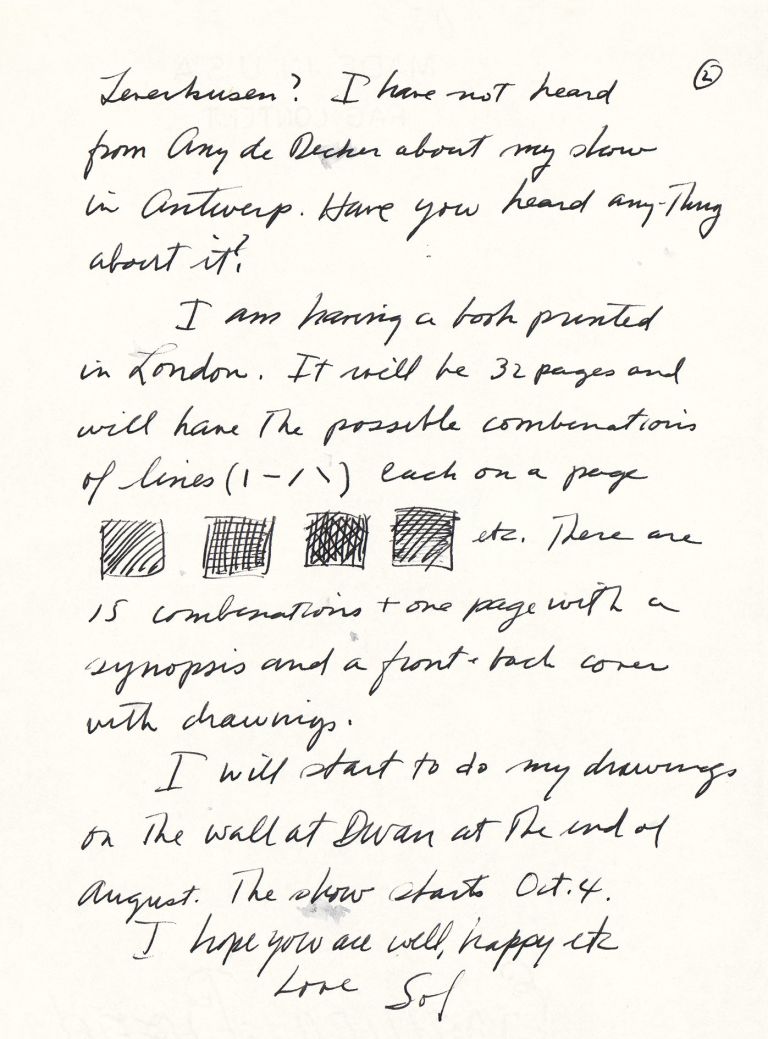 ②
Leverkusen? I have not heard
from Any de Decker about my show
in Antwerp. Have you heard any-Thing
about it?
I am having a book printed
in London. It will be 32 pages and
will have The possible combinations
of lines (| — / \) each on a page
etc. There are
15 combinations + one page with a
synopsis and a front + back cover
with drawings.
I will start to do my drawings
on The wall at Dwan at The end of
August. The show starts Oct. 4.
I hope you are well, happy etc
Love Sol